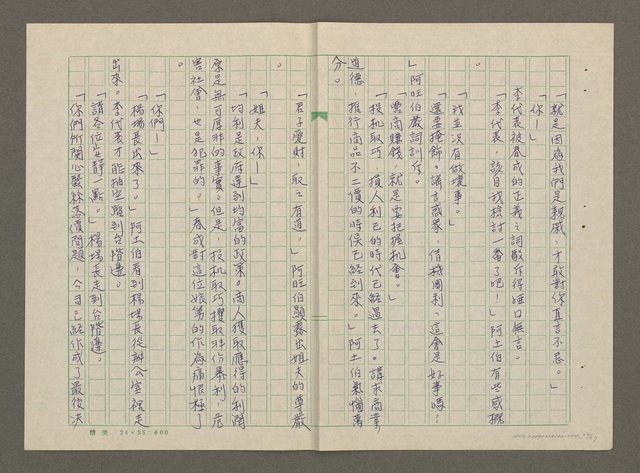 「就是因為我們是親戚，才敢對你直言不忌。」
「你！」
李代表被春成的正義之詞駁斥得啞口無言。
「李代表，該自我檢討一番了吧！」阿土伯有些感慨
。
「我並沒有做壞事。」
「還要掩飾。謠言惑眾，借機圖利，這會是好事嗎？
」阿旺伯嚴詞訓斥。
「要商賺錢，就是要把握機會。」
「投機取巧，損人利己的時代已經過去了。講求商業
道德，推行商品不二價的時候已經到來。」阿土伯氣憤萬
分。
「君子愛財，取之有道。」阿旺伯顯露出姐夫的尊嚴
。
「姐夫，你！」
「均利是政府達到均富的政策。商人獲取應得的利潤
原是無可厚非的事實。但是，投機取巧攫取非份暴利，危
害社會，也是犯罪的。」春成對這位娘舅的作為痛恨極了
。
「你們！」
「楊場長出來了。」阿土伯看到楊場長從辦公室裡走
出來。李代表才能抽空踱到台階邊。
「請各位安靜一點。」楊場長走到台階邊。
「你們所關心發綠落價問題，今日已經作成了最後決
24×25=600